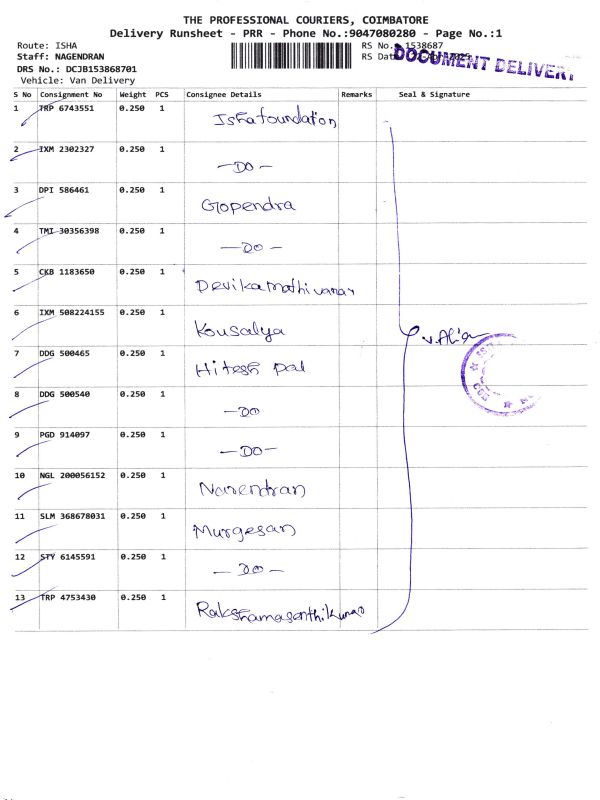 THE PROFESSIONAL COURIERS, COIMBATORE
Delivery Runsheet - PRR - Phone No.:9047080280 - Page No.:1
Route: ISHA RS No.: 1538687
Staff: NAGENDRAN RS Dat
DOCUMENT DELIVERY
DRS No.: DCJB153868701
Vehicle: Van Delivery
S No Consignment No Weight PCS Consignee Details Remarks Seal & Signature
1 TRP 6743551 0.250 1 Ishafoundation
2 IXM 2302327 0.250 1 -DO-
3 DPI 586461 0.250 1 Gopendra
4 TMI 30356398 0.250 1 -DO-
5 CKB 1183650 0.250 1 Devikamathivanan
6 IXM 508224155 0.250 1 Kousalya
7 DDG 500465 0.250 1 Hitesh Pal
8 DDG 500540 0.250 1 -DO
9 PGD 914097 0.250 1 -DO-
10 NGL 200056152 0.250 1 Narendran
11 SLM 368678031 0.250 1 Murgesan
12 STY 6145591 0.250 1 -DO-
13 TRP 4753430 0.250 1